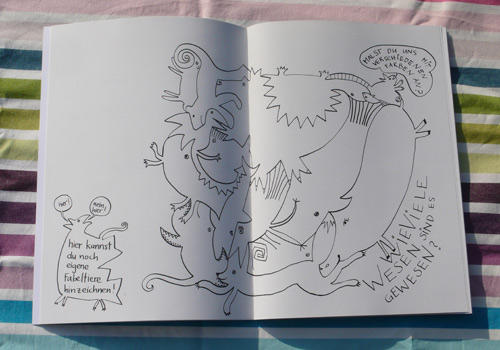 hier!
nein,
hier!
hier kannst
du noch
eigene
Fabeltiere
hinzeichnen!
MALST DU UNS MIT
VERSCHIEDENEN
FARBEN AN?
WIEVIELE
WESEN SIND ES
GEWESEN?